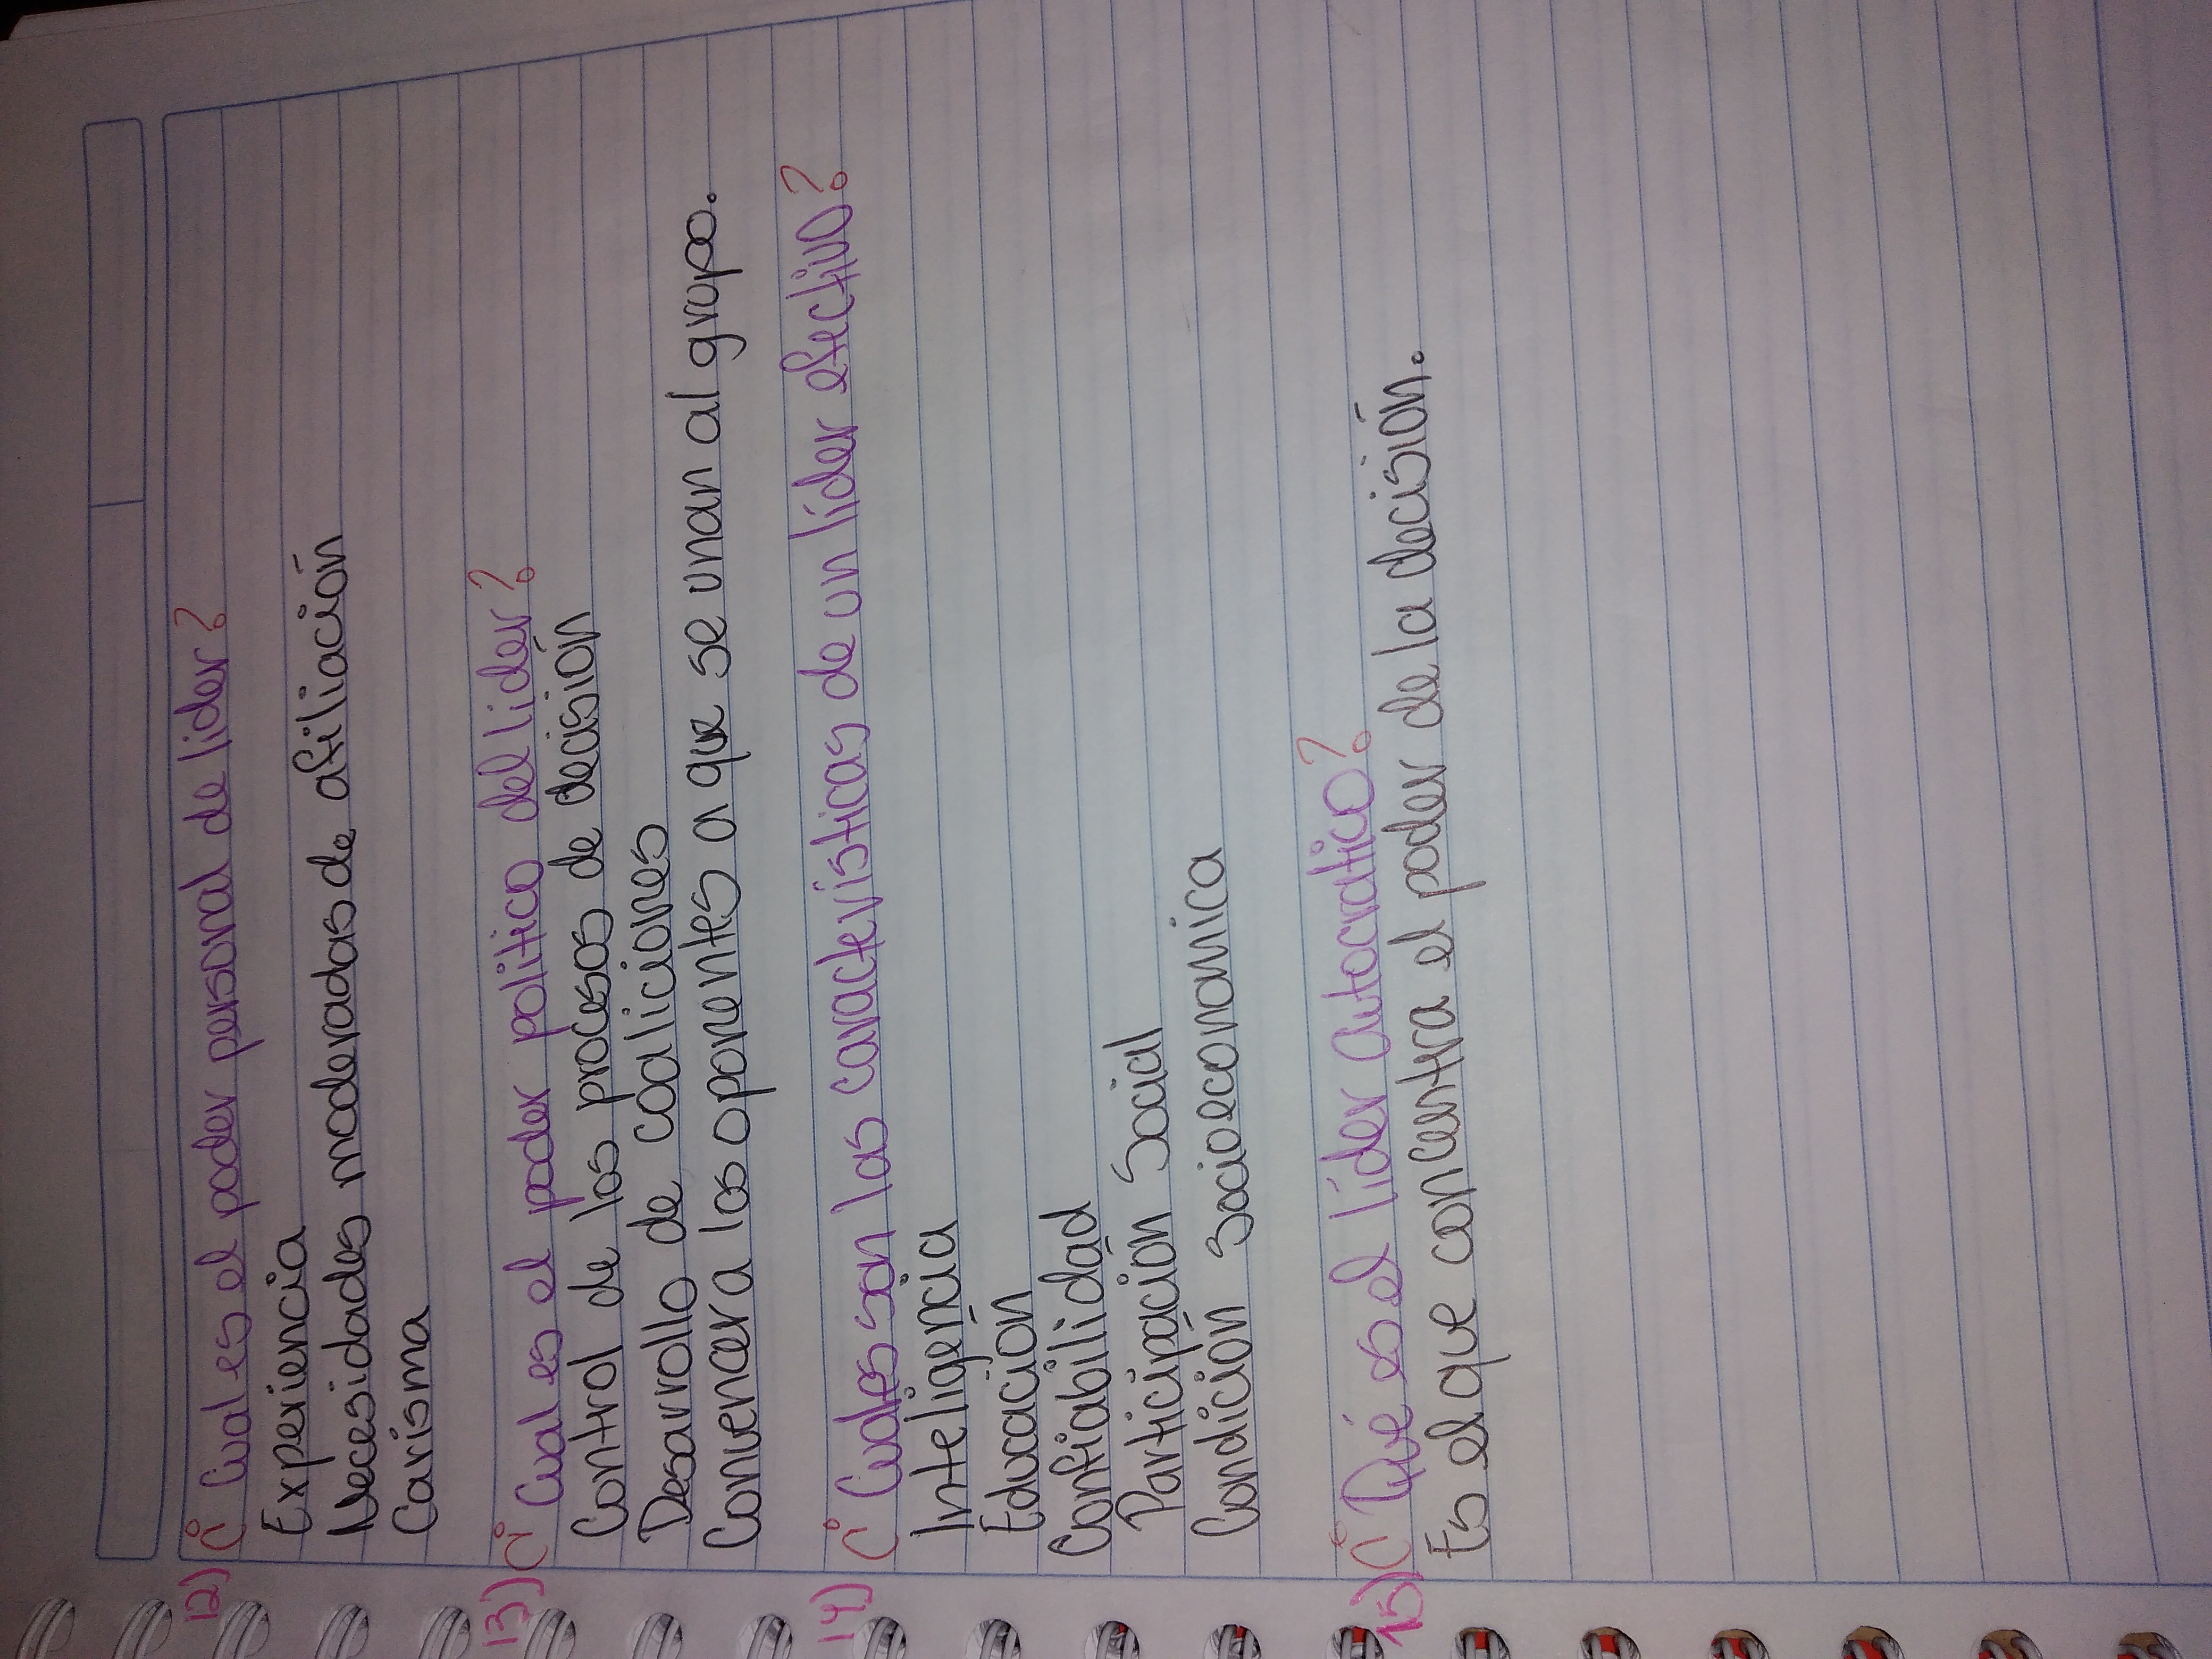 12) ¿Cual es el poder personal de lider?
Experiencia
Necesidades moderadas de afiliación
Carisma
13) ¿Cual es el poder politico del lider?
Control de los procesos de decisión
Desarrollo de coaliciones
Convencer a los oponentes a que se unan al grupo.
14) ¿Cuáles son las características de un líder efectivo?
Inteligencia
Educación
Confiabilidad
Participación Social
Condición Socioeconomica
15) ¿Qué es el líder autocratico?
Es el que concentra el poder de la decisión.